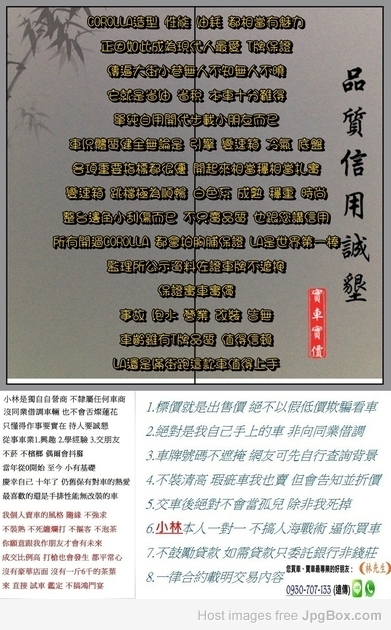 COROLLA造型 性能 油耗 都相當有魅力
正因如此成為現代人最愛 T牌保證
傳遍大街小巷無人不知無人不曉
它就是省油 省稅 本車十分難得
單純自用開代步載小朋友而已
車況體質健全無論是 引擎 變速箱 冷氣 底盤
各項重要指標都很優 開起來相當穩相當扎實
變速箱 跳檔極為順暢 白色系 成熟 穩重 時尚
整台邊角小刮傷而已 不只賣品質 也跟您講信用
所有開過COROLLA 都會拍胸脯保證 LA是世界第一棒
監理所公示資料佐證車牌不遮掩
保證實車實價
事故 泡水 營業 改裝 皆無
車齡雖有T牌品質 值得信賴
LA還是滿街跑這款車值得上手
品質信用誠墾
實車實價
小林是獨自自營商 不隸屬任何車商
沒同業借調車輛 也不會舌燦蓮花
只懂得作事要實在 待人要誠懇
從事車業1.興趣 2.學經驗 3.交朋友
不菸 不檳榔 偶爾會抖腳
當年從0開始 至今 小有基礎
慶幸自己 十年了 仍舊保有對車的熱愛
最喜歡的還是手排性能無改裝的車
我個人賣車的風格 隨緣 不強求
不裝熟 不死纏爛打 不摳客 不泡茶
你願意跟我作朋友才會有未來
成交比例高 打槍也會發生 都平常心
沒有豪華店面 沒有一斤6千的茶葉
來 直接 試車 鑑定 不搞鴻門宴
1.標價就是出售價 絕不以假低價欺騙看車
2.絕對是我自己手上的車 非向同業借調
3.車牌號碼不遮掩 網友可先自行查詢背景
4.不裝清高 瑕疵車我也賣 但會告知並折價
5.交車後絕對不會當孤兒 除非我死掉
6.小林本人一對一 不搞人海戰術 逼你買車
7.不鼓勵貸款 如需貸款只委託銀行非錢莊
8.一律合約載明交易內容
您買車、賣車最專業的好朋友：
(林先生)
0930-707-133 (遠傳)
Host images free at JpgBox.com